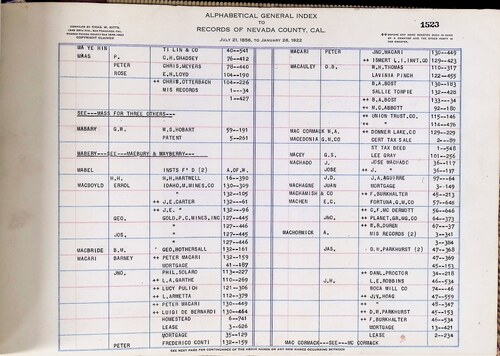 ALPHABETICAL GENERAL INDEX
TO
RECORDS OF NEVADA COUNTY, CAL.
JULY 21, 1856, TO JANUARY 28, 1922
1523
COPYRIGHT CLAIMED
MA YE HIN TI LIN & CO 40—541
MAAS P. C.H.CHADSEY 76—412
PETER CHRIS.MEYERS 78—440
ROSE E.H.LLOYD 104—190
++ CHRIS.OTTERBACH 104—226
MIS RECORDS 1—34
1—427
SEE---MASS FOR THREE OTHERS---
MABARY G.W. W.S.HOBART 59—191
PATENT 5—261
MABERY---SEE---MACBURY & MAYBERRY---
MABEL INSTS F'D (2) A.OF.N.
MAC H.H. H.H.HARTWELL 16—390
MACBOYLD ERROL IDAHO.M.MINES.CO 130—309
3—105
++ J.E.CARTER 132—61
++ J.E. " 132—96
GEO. GOLD.P.G.MINES.INC 127—445
" 127—446
JOS. " 127—445
" 127—446
MACBRIDE D.M. GEO.MOTHERSALL 132—161
MACARI BARNEY ++ PETER MACARI 132—159
MORTGAGE 41—187
JNO. PHIL.SOLARO 113—227
++ L.A.GARTHE 110—269
++ LUCY PULICH 121—306
++ L.ARMETTA 112—379
++ PETER MACARI 130—449
++ LUIGI DE BERNARDI 130—464
HOMESTEAD 6—741
LEASE 3—626
MORTGAGE 35—129
PETER FREDERICO CONTI 132—159
MACARI PETER JNO.MACARI 130—449
++ ISMERT L.I.INVT.CO 129—423
MACAULEY D.B. W.H.THOMAS 110—317
LAVINIA PINCH 122—455
B.A.BOST 130—183
SALLIE TORPIE 132—428
++ B.A.BOST 133—34
++ M.C.ABBOTT 92—180
++ UNION TRUST.CO 115—146
++ " 114—476
MAC CORMACK W.A. ++ DONNER LAKE.CO 129—229
MACEDONIA G.M.CO CERT TAX SALE 2—89
ST TAX DEED 1—548
MACEY G.S. LEE GRAY 101—256
MACHADO J. JOSE MACHADO 36—117
JOSE ++ J. " 36—117
J.D. J.A.AGUIRRE 97—64
MACHAGNE JUAN MORTGAGE 3—149
MACHAMISH & CO ++ F.BURKHALTER 45—213
MACHER E.C. FORTUNA.G.M.CO 57—648
++ C.F.MC DERMOTT 56—646
JNO. ++ PLANET.GR.NG.CO 64—373
++ R.DUREN 67—47
MACHORMICK A. MIS RECORDS (2) 3—341
3—384
JAS. D.H.PARKHURST (2) 47—368
47—369
45—153
++ DANL.PROCTOR 34—218
J.H. L.E.ROBBINS 46—534
ROCA MILL CO 74—46
++ J.V.HOAG 47—559
++ " 45—347
++ D.H.PARKHURST 45—153
++ F.BURKHALTER 46—534
MORTGAGE 13—421
LEASE 2—234
MAC CORMACK---SEE---MC CORMACK